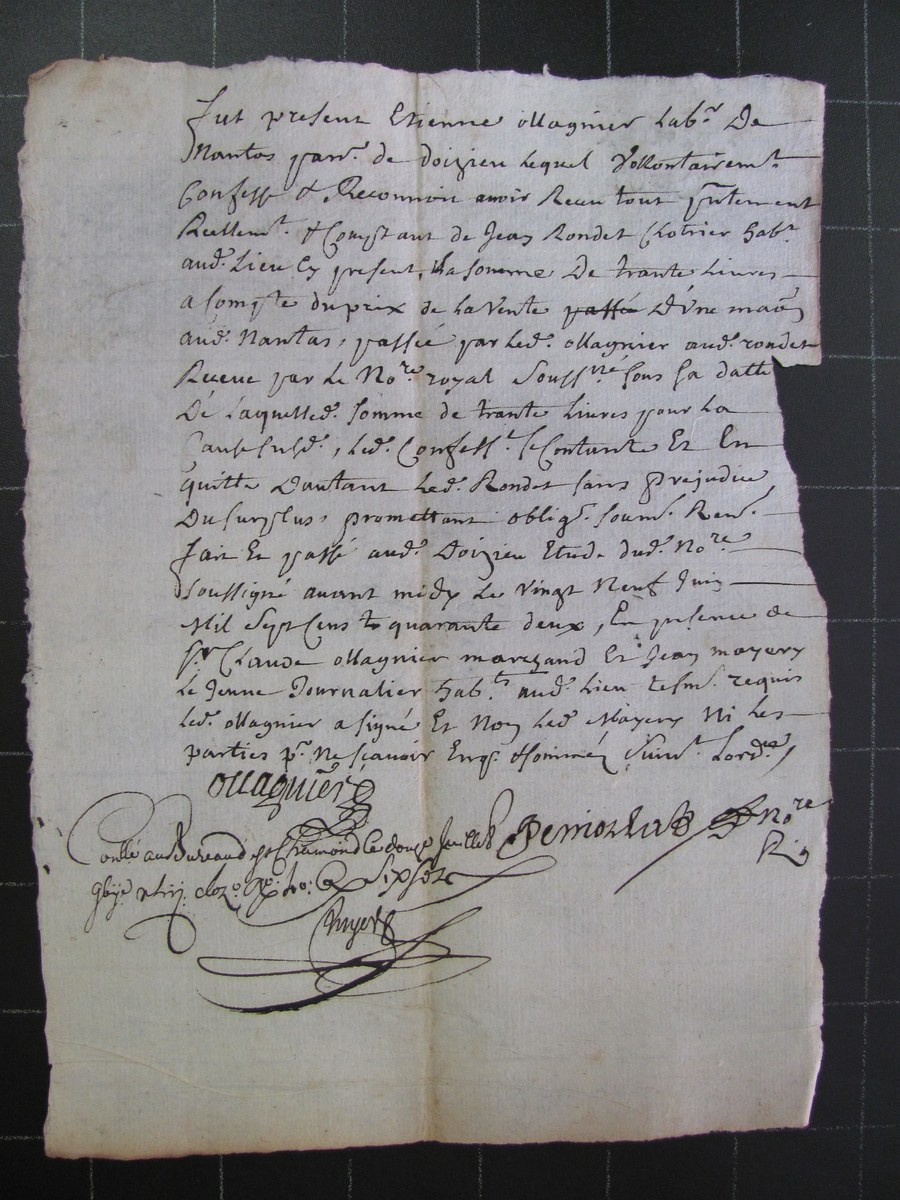 Fut present Etienne Ollagnier hab.^r De
Nantas parr.^e de doizieu lequel Vollontairem.^t
Confesse & Reconnoit avoir Receu tout p^ntement
Reellem.^t & Comptant de Jean Rondet Clotrier hab.^t
aud. Lieu Cy present, la somme De trante Livres
a Compte du prix de la Vente passée D'une maōn
aud. Nantas, passée par led. Ollagnier aud. rondet
Receue par le No.^re royal Soussi^né sous sa datte
De Laquelled. somme de trante Livres pour La
Cause susd., led. Confess.^t se Contante Et En
quitte Dautant led. Rondet sans prejudice
Du surplus, promettant oblig.^t soum.^t Ren.^t
Fait Et passé aud. Doizieu Etude dud. No.^re
Soussigné avant midy Le Vingt Neuf Juin
Mil Sept Cens quarante deux, En presence de
S.^r Claude Ollagnier marchand Et Jean mayery
Le Jeune Journalier hab.^ts aud. Lieu tesm. requis
led. Ollagnier a signé Et Non led. Mayery Ni les
parties p.^r Ne sçavoir Enq. & sommés Suiv.^t Lord.^ce
Ollagnier
No.^re
Conllé au Bureau de St Chamond Le douze Juillet
R
six sols